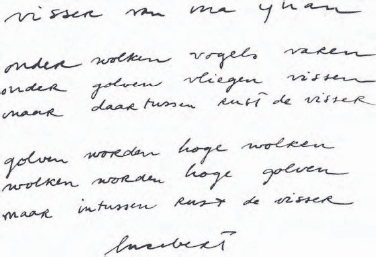 visser van ma yuan
onder wolken vogels varen
onder golven vliegen vissen
maar daartussen rust de visser
golven worden hoge wolken
wolken worden hoge golven
maar intussen rust de visser
lucebert